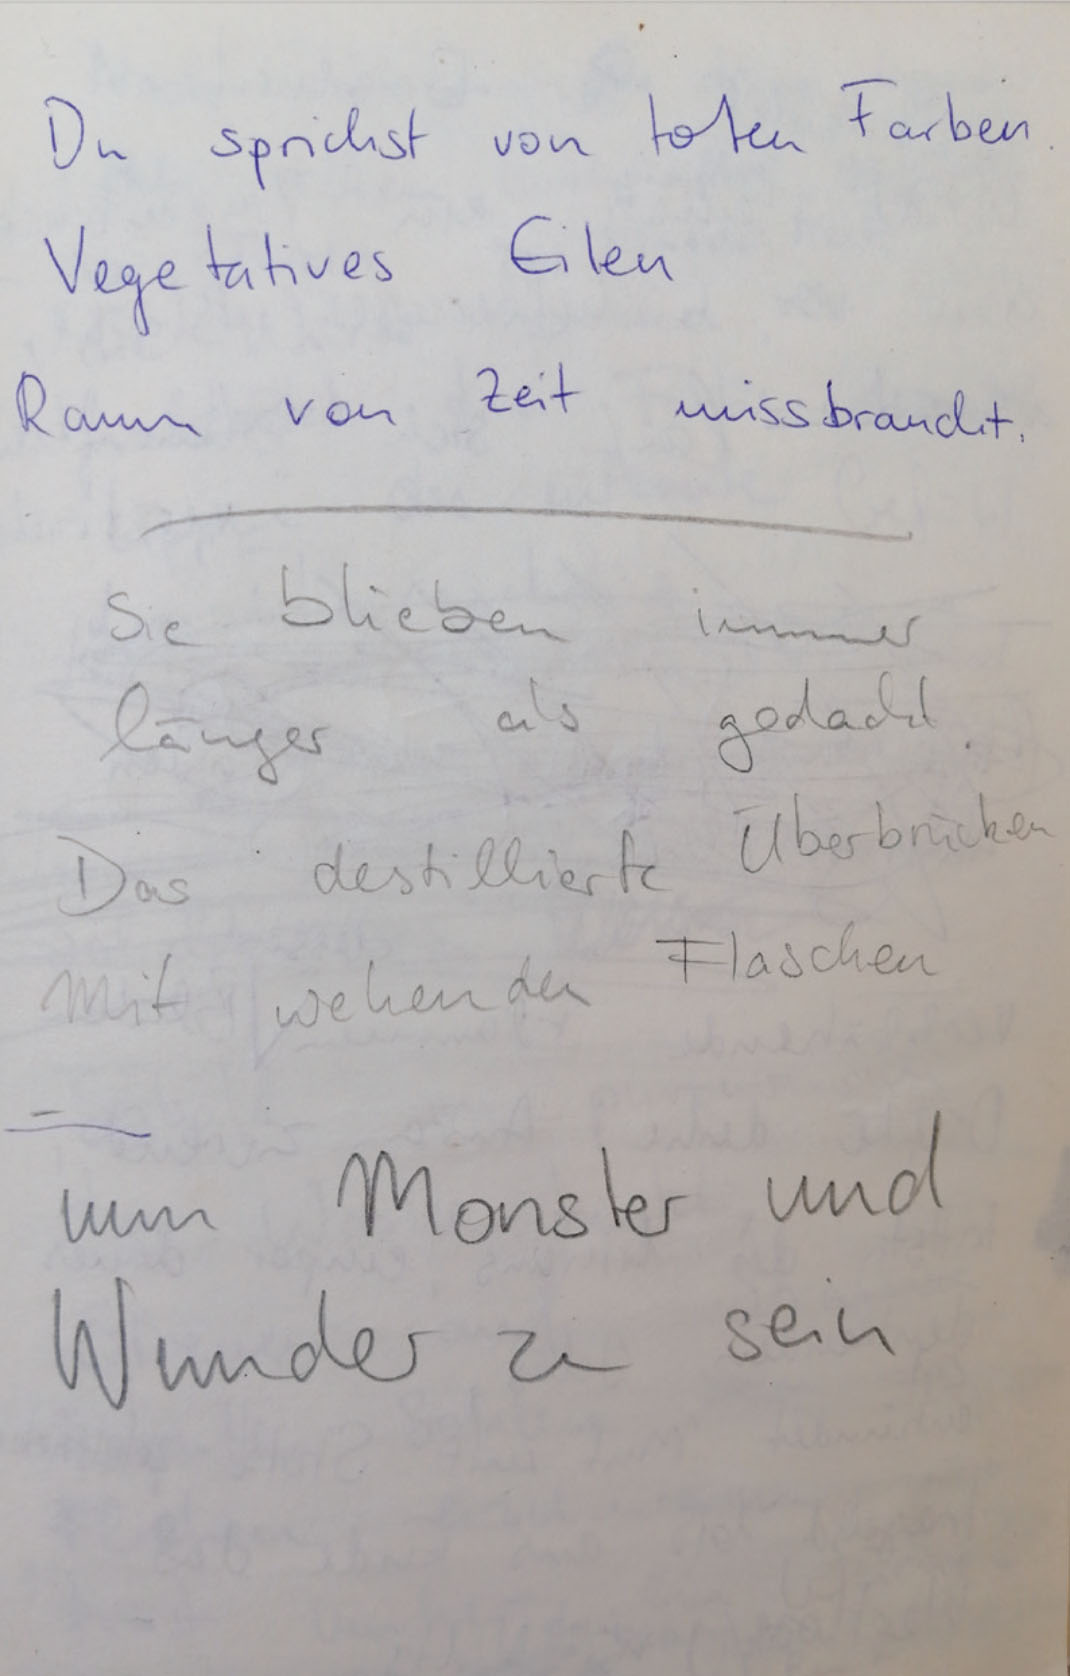 Du sprichst von toten Farben.
Vegetatives Eilen
Raum von Zeit missbraucht.
Sie blieben immer
länger als gedacht.
Das destillierte Überbrücken
Mit wehenden Flaschen
um Monster und
Wunder zu sein